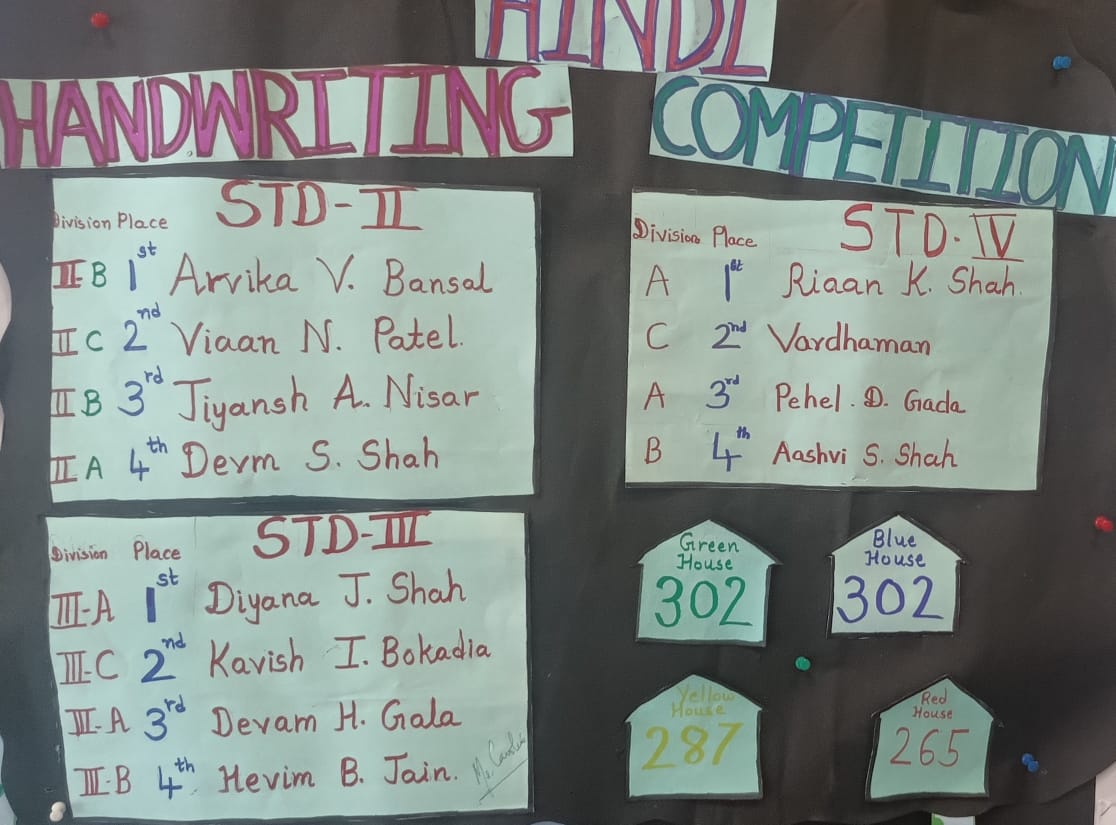 HINDI
HANDWRITING COMPETITION
STD-II
Division Place
II-B 1st Arvika V. Bansal
II C 2nd Viaan N. Patel.
II B 3rd Jiyansh A. Nisar
II A 4th Devm S. Shah
STD-III
Division Place
III-A 1st Diyana J. Shah
III-C 2nd Kavish I. Bokadia
III-A 3rd Devam H. Gala
III-B 4th Hevim B. Jain.
STD-IV
Division Place
A 1st Riaan K. Shah.
C 2nd Vardhaman
A 3rd Pehel. D. Gada
B 4th Aashvi S. Shah
Green
House
302
Blue
House
302
Yellow
House
287
Red
House
265